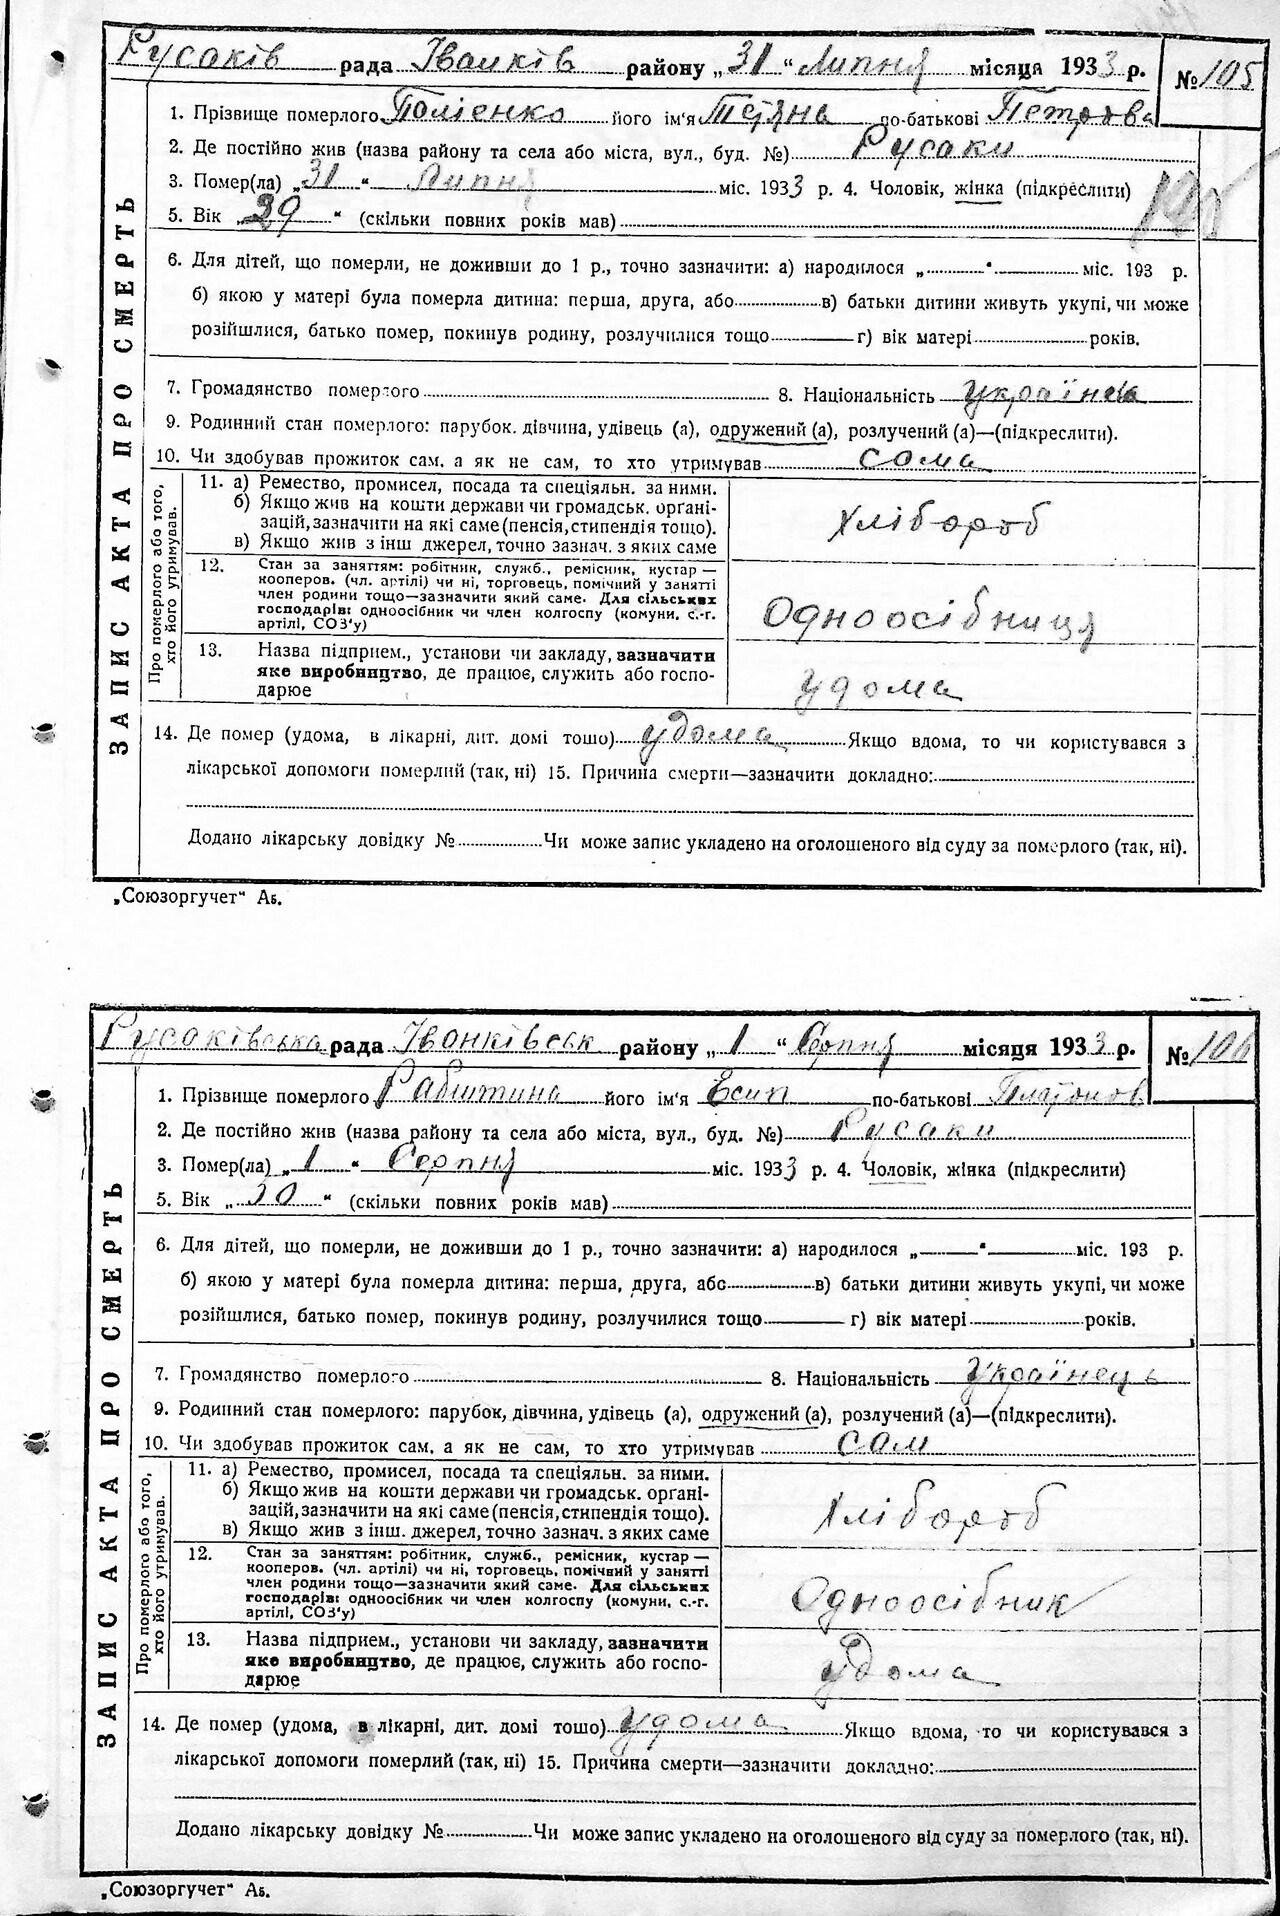 Русаків рада Іванків району „31“ Липня місяця 1933 р. № 105
1. Прізвище померлого Полієнко його ім'я Тетяна по-батькові Петрова
2. Де постійно жив (назва району та села або міста, вул., буд. №) Русаки
3. Помер(ла) „31“ Липня міс. 1933 р. 4. Чоловік, жінка (підкреслити)
5. Вік „39“ (скільки повних років мав)
6. Для дітей, що померли, не доживши до 1 р., точно зазначити: а) народилося „ “ міс. 193 р.
б) якою у матері була померла дитина: перша, друга, або в) батьки дитини живуть укупі, чи може
розійшлися, батько помер, покинув родину, розлучилися тощо г) вік матері років.
7. Громадянство померлого 8. Національність українка
9. Родинний стан померлого: парубок. дівчина, удівець (а), одружений (а), розлучений (а)—(підкреслити).
10. Чи здобував прожиток сам, а як не сам, то хто утримував сама
ЗАПИС АКТА ПРО СМЕРТЬ
Про померлого або того, хто його утримував.
11. а) Ремество, промисел, посада та спеціяльн. за ними.
б) Якщо жив на кошти держави чи громадськ. органі-
зацій, зазначити на які саме (пенсія, стипендія тощо).
в) Якщо жив з інш джерел, точно зазнач. з яких саме
Хлібороб
12. Стан за заняттям: робітник, служб., ремісник, кустар —
кооперов. (чл. артілі) чи ні, торговець, помічний у занятті
член родини тощо—зазначити який саме. Для сільських
господарів: одноосібник чи член колгоспу (комуни, с.-г.
артілі, СОЗ'у)
Одноосібниця
13. Назва підприєм., установи чи закладу, зазначити
яке виробництво, де працює, служить або госпо-
дарює
удома
14. Де помер (удома, в лікарні, дит. домі тошо) удома Якщо вдома, то чи користувався з
лікарської допомоги померлий (так, ні) 15. Причина смерти—зазначити докладно:
Додано лікарську довідку № Чи може запис укладено на оголошеного від суду за померлого (так, ні).
„Союзоргучет“ Аб.
Русаківська рада Іванківськ району „1“ Серпня місяця 1933 р. № 106
1. Прізвище померлого Рабштина його ім'я Есип по-батькові Платонов
2. Де постійно жив (назва району та села або міста, вул., буд. №) Русаки
3. Помер(ла) „1“ Серпня міс. 1933 р. 4. Чоловік, жінка (підкреслити)
5. Вік „30“ (скільки повних років мав)
6. Для дітей, що померли, не доживши до 1 р., точно зазначити: а) народилося „ “ міс. 193 р.
б) якою у матері була померла дитина: перша, друга, або в) батьки дитини живуть укупі, чи може
розійшлися, батько помер, покинув родину, розлучилися тощо г) вік матері років.
7. Громадянство померлого 8. Національність Українець
9. Родинний стан померлого: парубок, дівчина, удівець (а), одружений (а), розлучений (а)—(підкреслити).
10. Чи здобував прожиток сам, а як не сам, то хто утримував сам
ЗАПИС АКТА ПРО СМЕРТЬ
Про померлого або того, хто його утримував.
11. а) Ремество, промисел, посада та спеціяльн. за ними.
б) Якщо жив на кошти держави чи громадськ. органі-
зацій, зазначити на які саме (пенсія, стипендія тощо).
в) Якщо жив з інш. джерел, точно зазнач. з яких саме
Хлібороб
12. Стан за заняттям: робітник, служб., ремісник, кустар —
кооперов. (чл. артілі) чи ні, торговець, помічний у занятті
член родини тощо—зазначити який саме. Для сільських
господарів: одноосібник чи член колгоспу (комуни, с.-г.
артілі, СОЗ'у)
Одноосібник
13. Назва підприєм., установи чи закладу, зазначити
яке виробництво, де працює, служить або госпо-
дарює
удома
14. Де помер (удома, в лікарні, дит. домі тошо) удома Якщо вдома, то чи користувався з
лікарської допомоги померлий (так, ні) 15. Причина смерти—зазначити докладно:
Додано лікарську довідку № Чи може запис укладено на оголошеного від суду за померлого (так, ні).
„Союзоргучет“ Аб.